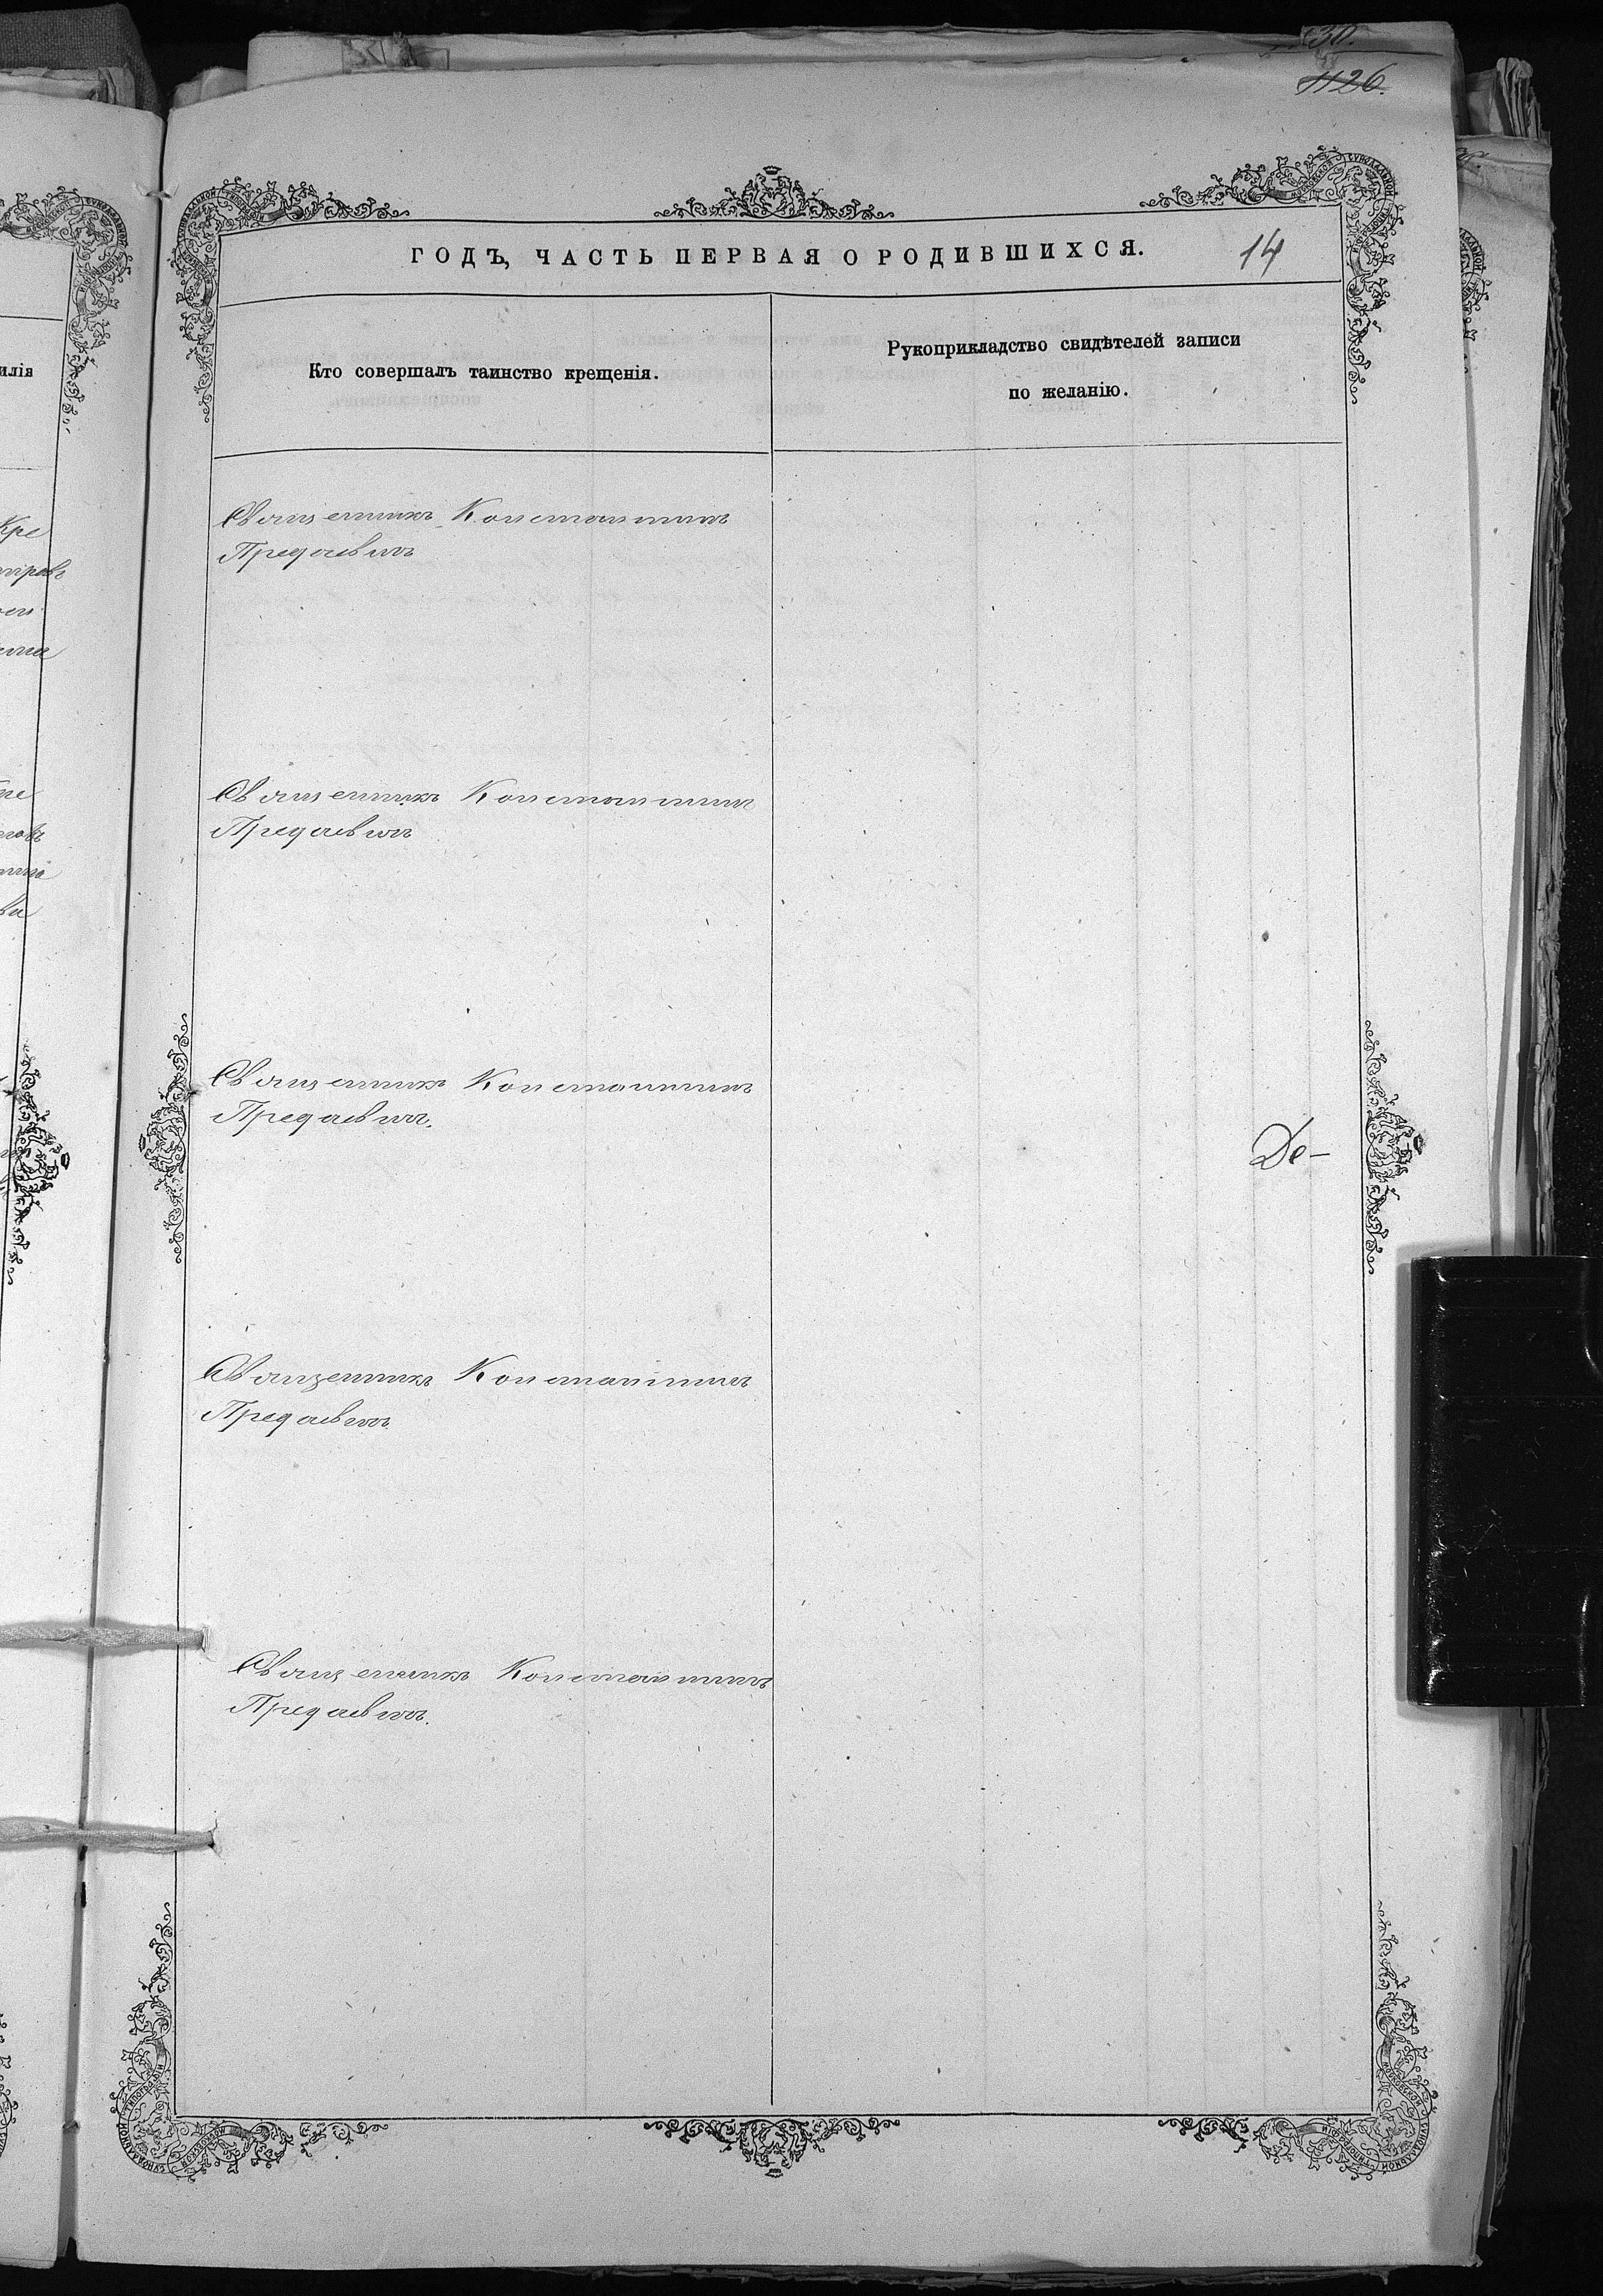 30.
1126.
ГОДЪ, ЧАСТЬ ПЕРВАЯ О РОДИВШИХСЯ.
14
Кто совершалъ таинство крещенія.
Рукоприкладство свидѣтелей записи
по желанію.
илія
Священникъ Константинъ
Предаевичъ
Священникъ Константинъ
Предаевичъ
Священникъ Константинъ
Предаевичъ.
De-
Священникъ Константинъ
Предаевичъ
Священникъ Константинъ
Предаевичъ.